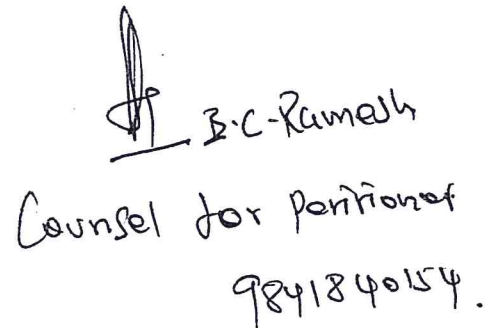 B.C-Ramesh
Counsel for Petitioner
9841840154.